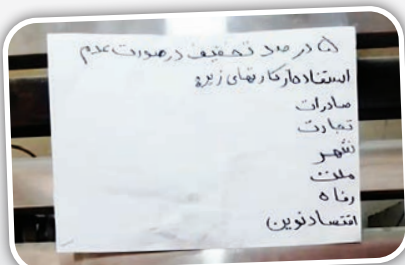 ۵ درصد تخفیف درصورت عدم
استفاده از کارتهای زیر؛
صادرات
تجارت
شهر
ملت
رفاه
اقتصاد نوین